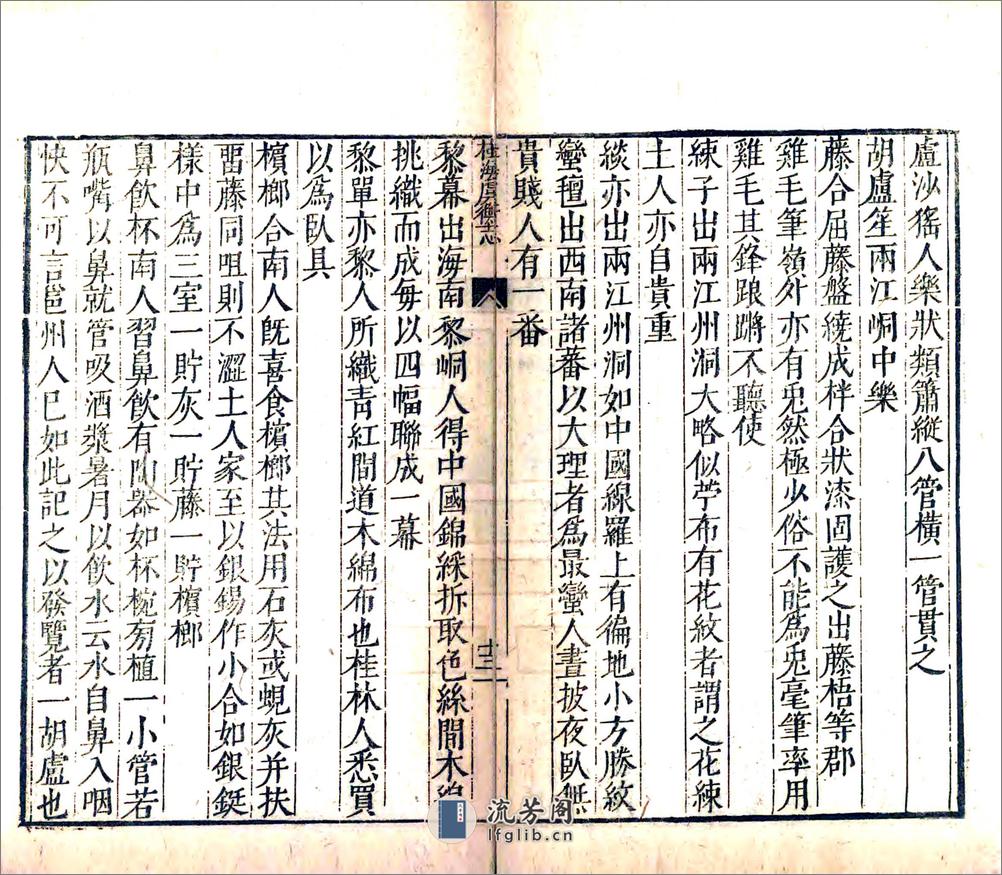 盧沙猺人樂狀類簫縱八管橫一管貫之
胡盧笙兩江峒中樂
藤合屈藤盤繞成柈合狀漆固護之出藤梧等郡
雞毛筆嶺外亦有兎然極少俗不能為兎毫筆率用
雞毛其鋒踉蹡不聽使
練子出兩江州洞大略似苧布有花紋者謂之花練
土人亦自貴重
緂亦出兩江州洞如中國線羅上有徧地小方勝紋
蠻氊出西南諸蕃以大理者為最蠻人晝披夜臥無
貴賤人有一番
桂海虞衡志
十二
黎幕出海南黎峒人得中國錦綵拆取色絲間木綿
挑織而成每以四幅聯成一幕
黎單亦黎人所織青紅間道木綿布也桂林人悉買
以為臥具
檳榔合南人旣喜食檳榔其法用石灰或蜆灰并扶
畱藤同咀則不澀士人家至以銀錫作小合如銀鋌
樣中為三室一貯灰一貯藤一貯檳榔
鼻飲杯南人習鼻飲有陶器如杯椀旁植一小管若
瓶嘴以鼻就管吸酒漿暑月以飲水云水自鼻入咽
快不可言邕州人已如此記之以發覽者一胡盧也
流芳阁
lfglib.cn